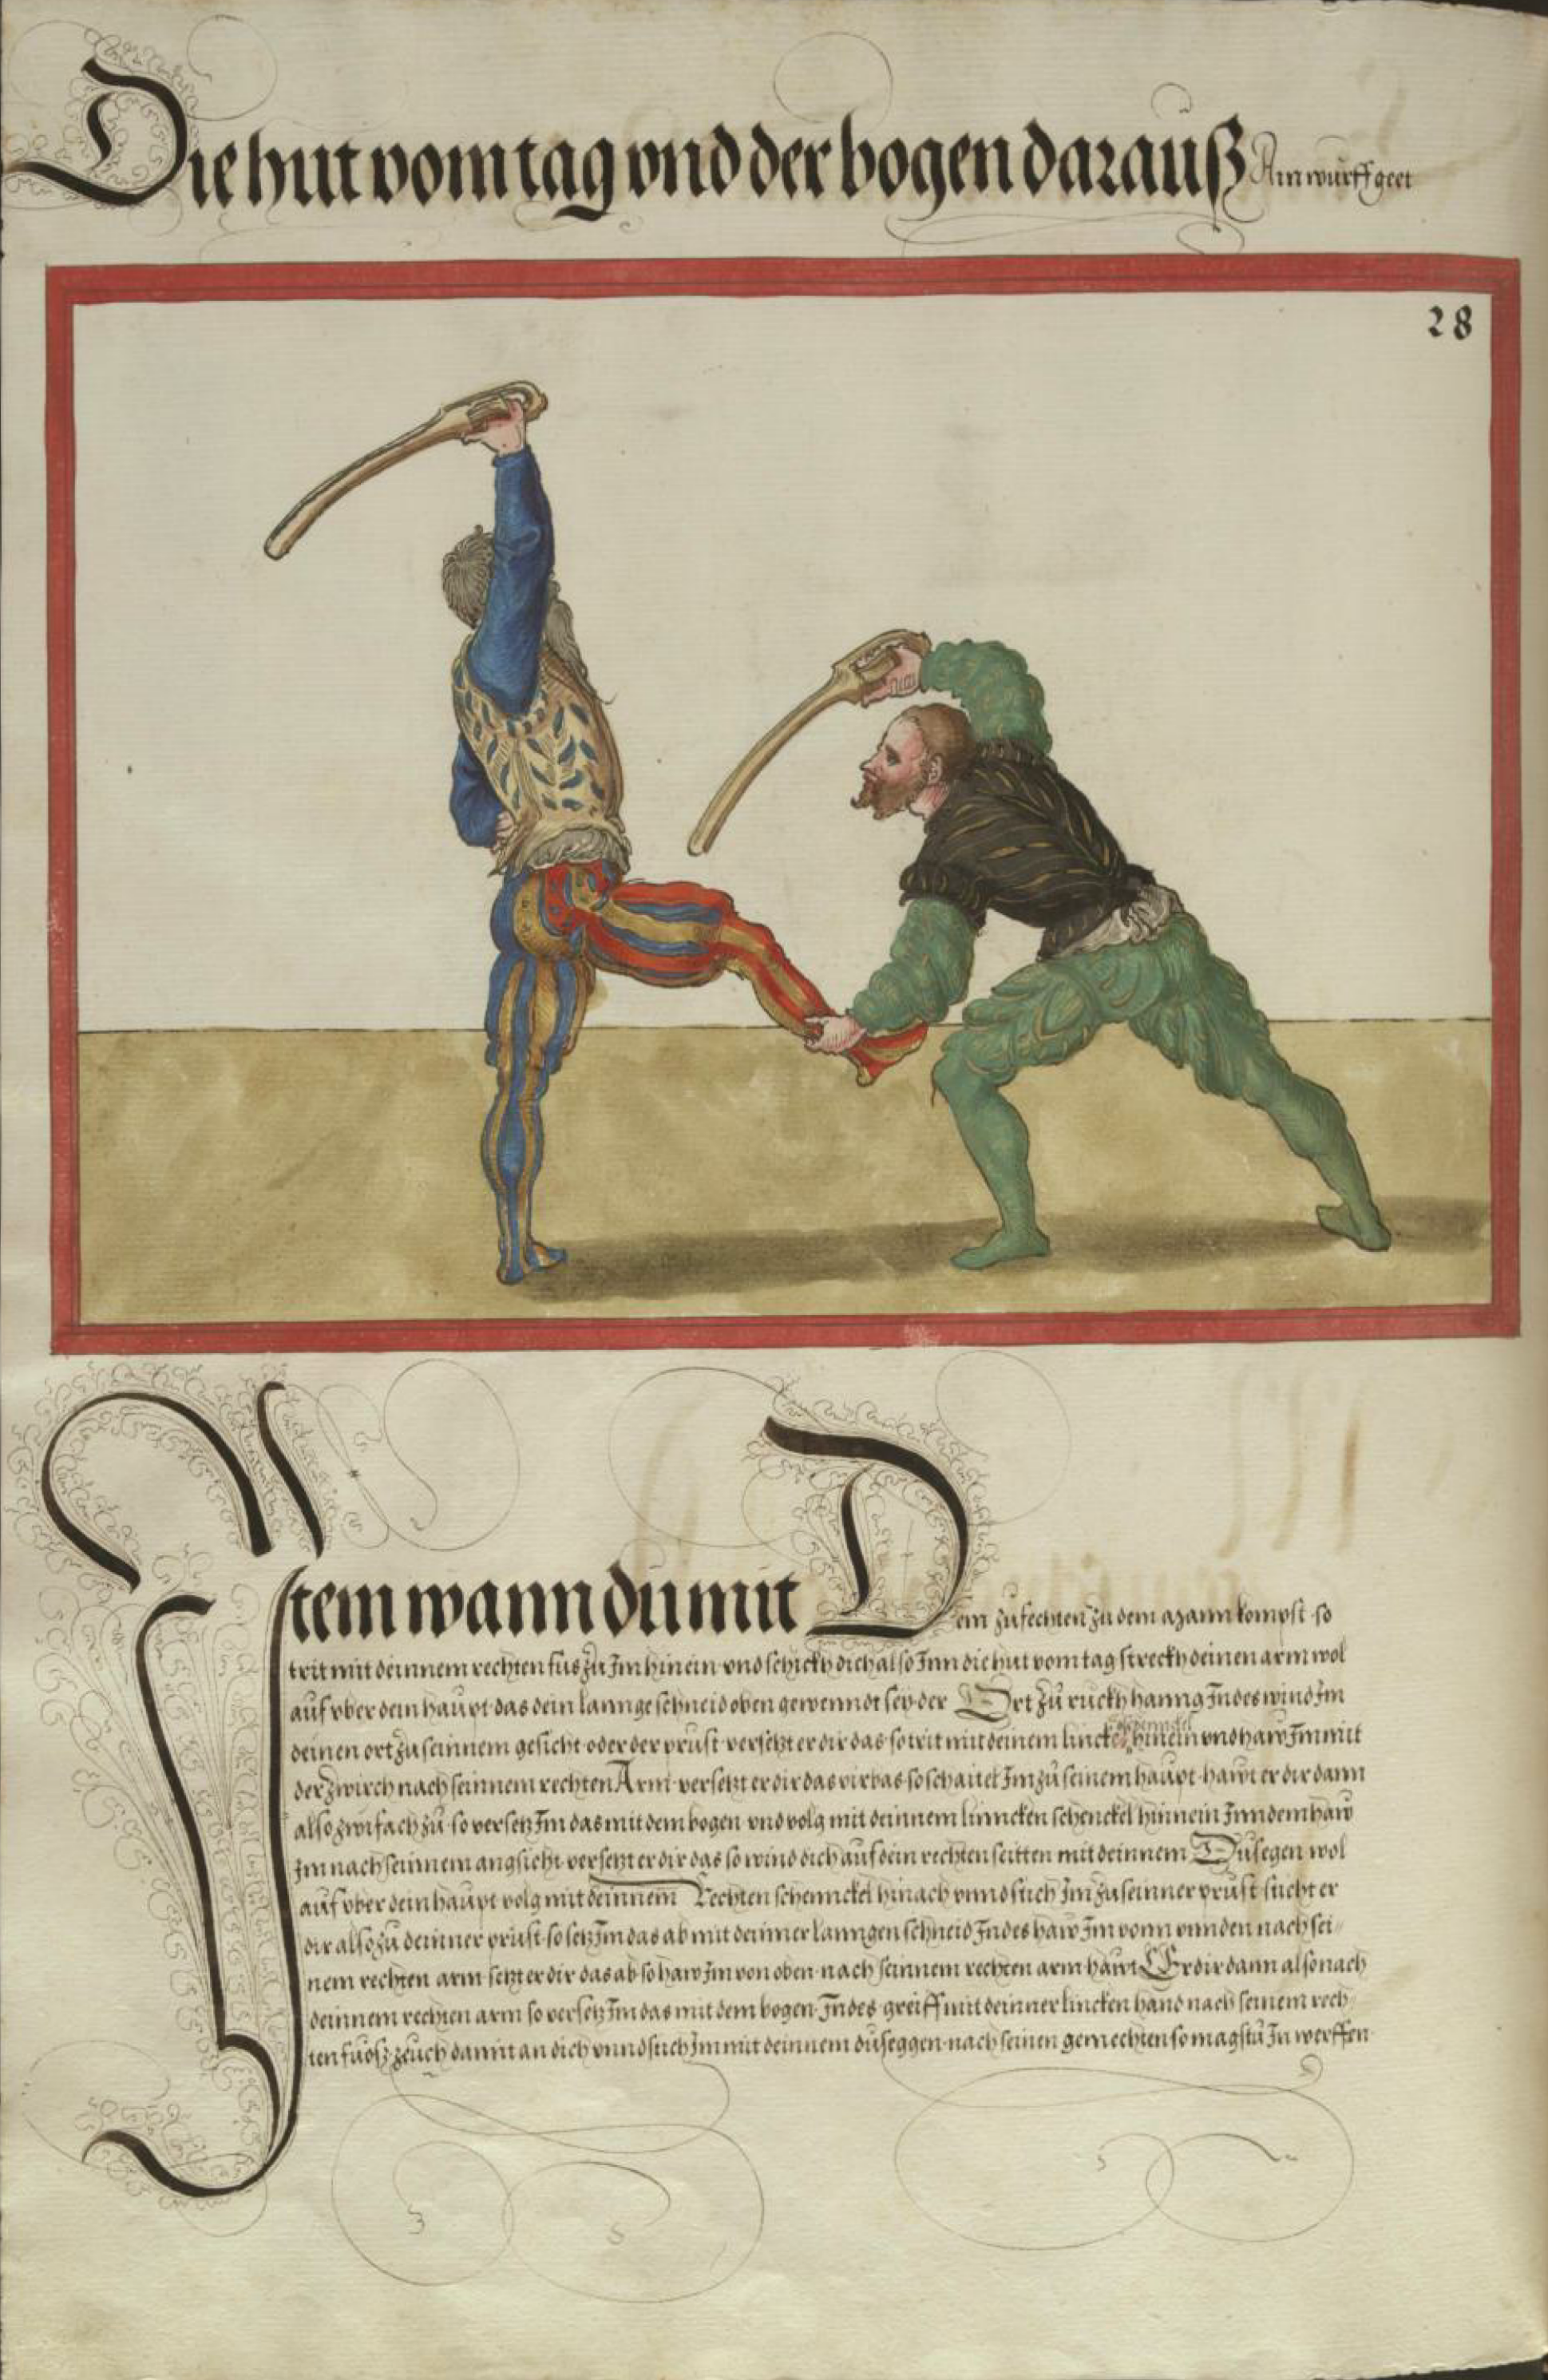 Die hut vom tag vnd der bogen darauß Ain wurff geet
28
Item wann du mit Dem zufechten zu dem Mann kompst so
trit mit deinnem rechten fus zu Im hinein vnd schickh dich also Inn die hut vom tag streckh deinen arm wol
auf vber dein haupt das dein lannge schneid oben gewenndt sey der Ort zu ruckh hanng Indes wind Im
deinen ort zu seinnem gesicht oder der prust versetzt er dir das so trit mit deinem lincken hinein vnd haw Im mit
der zwirch nach seinnem rechten Arm versetzt er dir das virbas so schaitel Im zu seinem haupt hawt er dir dann
also zwifach zu so versetz Im das mit dem bogen vnd volg mit deinnem linncken schenckel hinnein Inn dem haw
Im nach seinnem angsicht versetzt er dir das so wind dich auf dein rechten seitten mit deinnem Dusegen wol
auf vber dein haupt volg mit deinnem Rechten schennckel hinach vnnd stich Im zu seinner prust sticht er
dir also zu deinner prust so setz Im das ab mit deinner lanngen schneid Indes haw Im vonn vnnden nach sei=
nem rechten arm setzt er dir das ab so haw Im von oben nach seinnem rechten arm hawt Er dir dann also nach
deinnem rechten arm so versetz Im das mit dem bogen Indes greiff mit deinner lincken hand nach seinem rech
ten fuosz zeuch damit an dich vnnd stich Im mit deinnem duseggen nach seinen gemechten so magstu In werffen